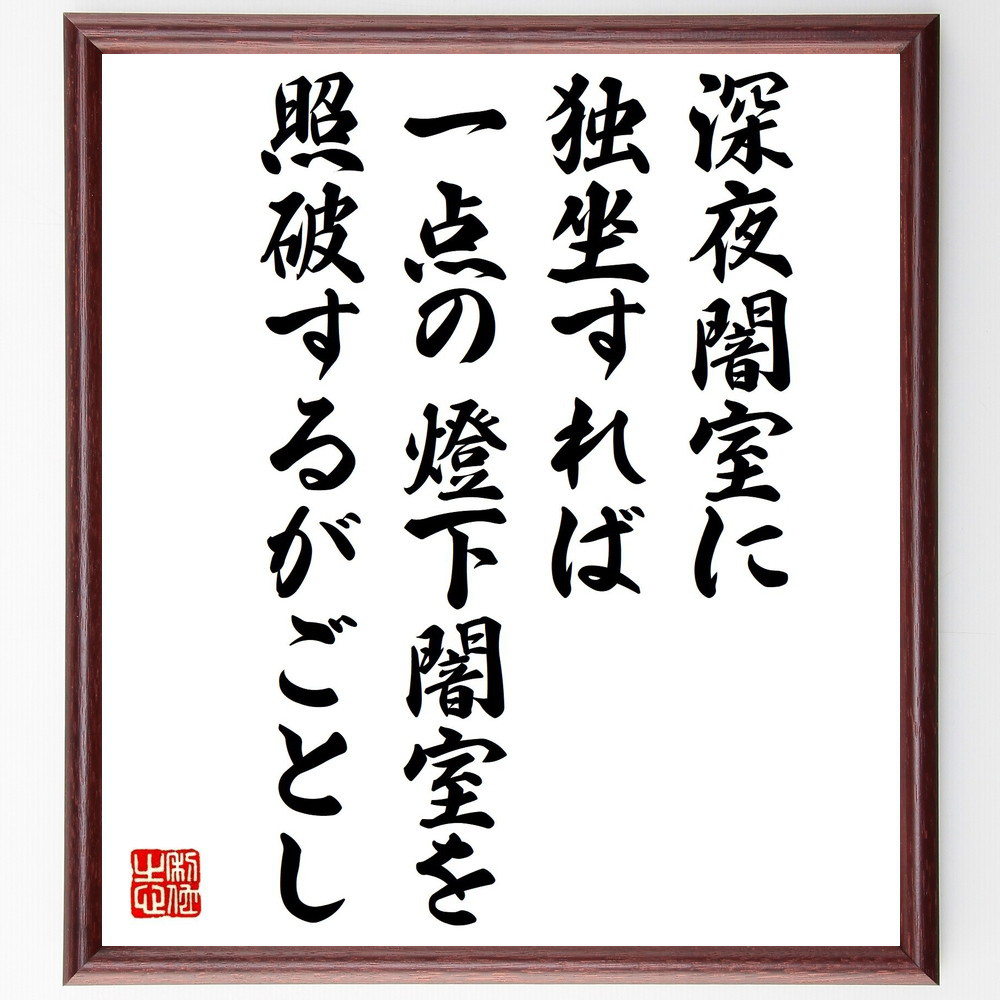 深夜闇室に
独坐すれば
一点の燈下闇室を
照破するがごとし